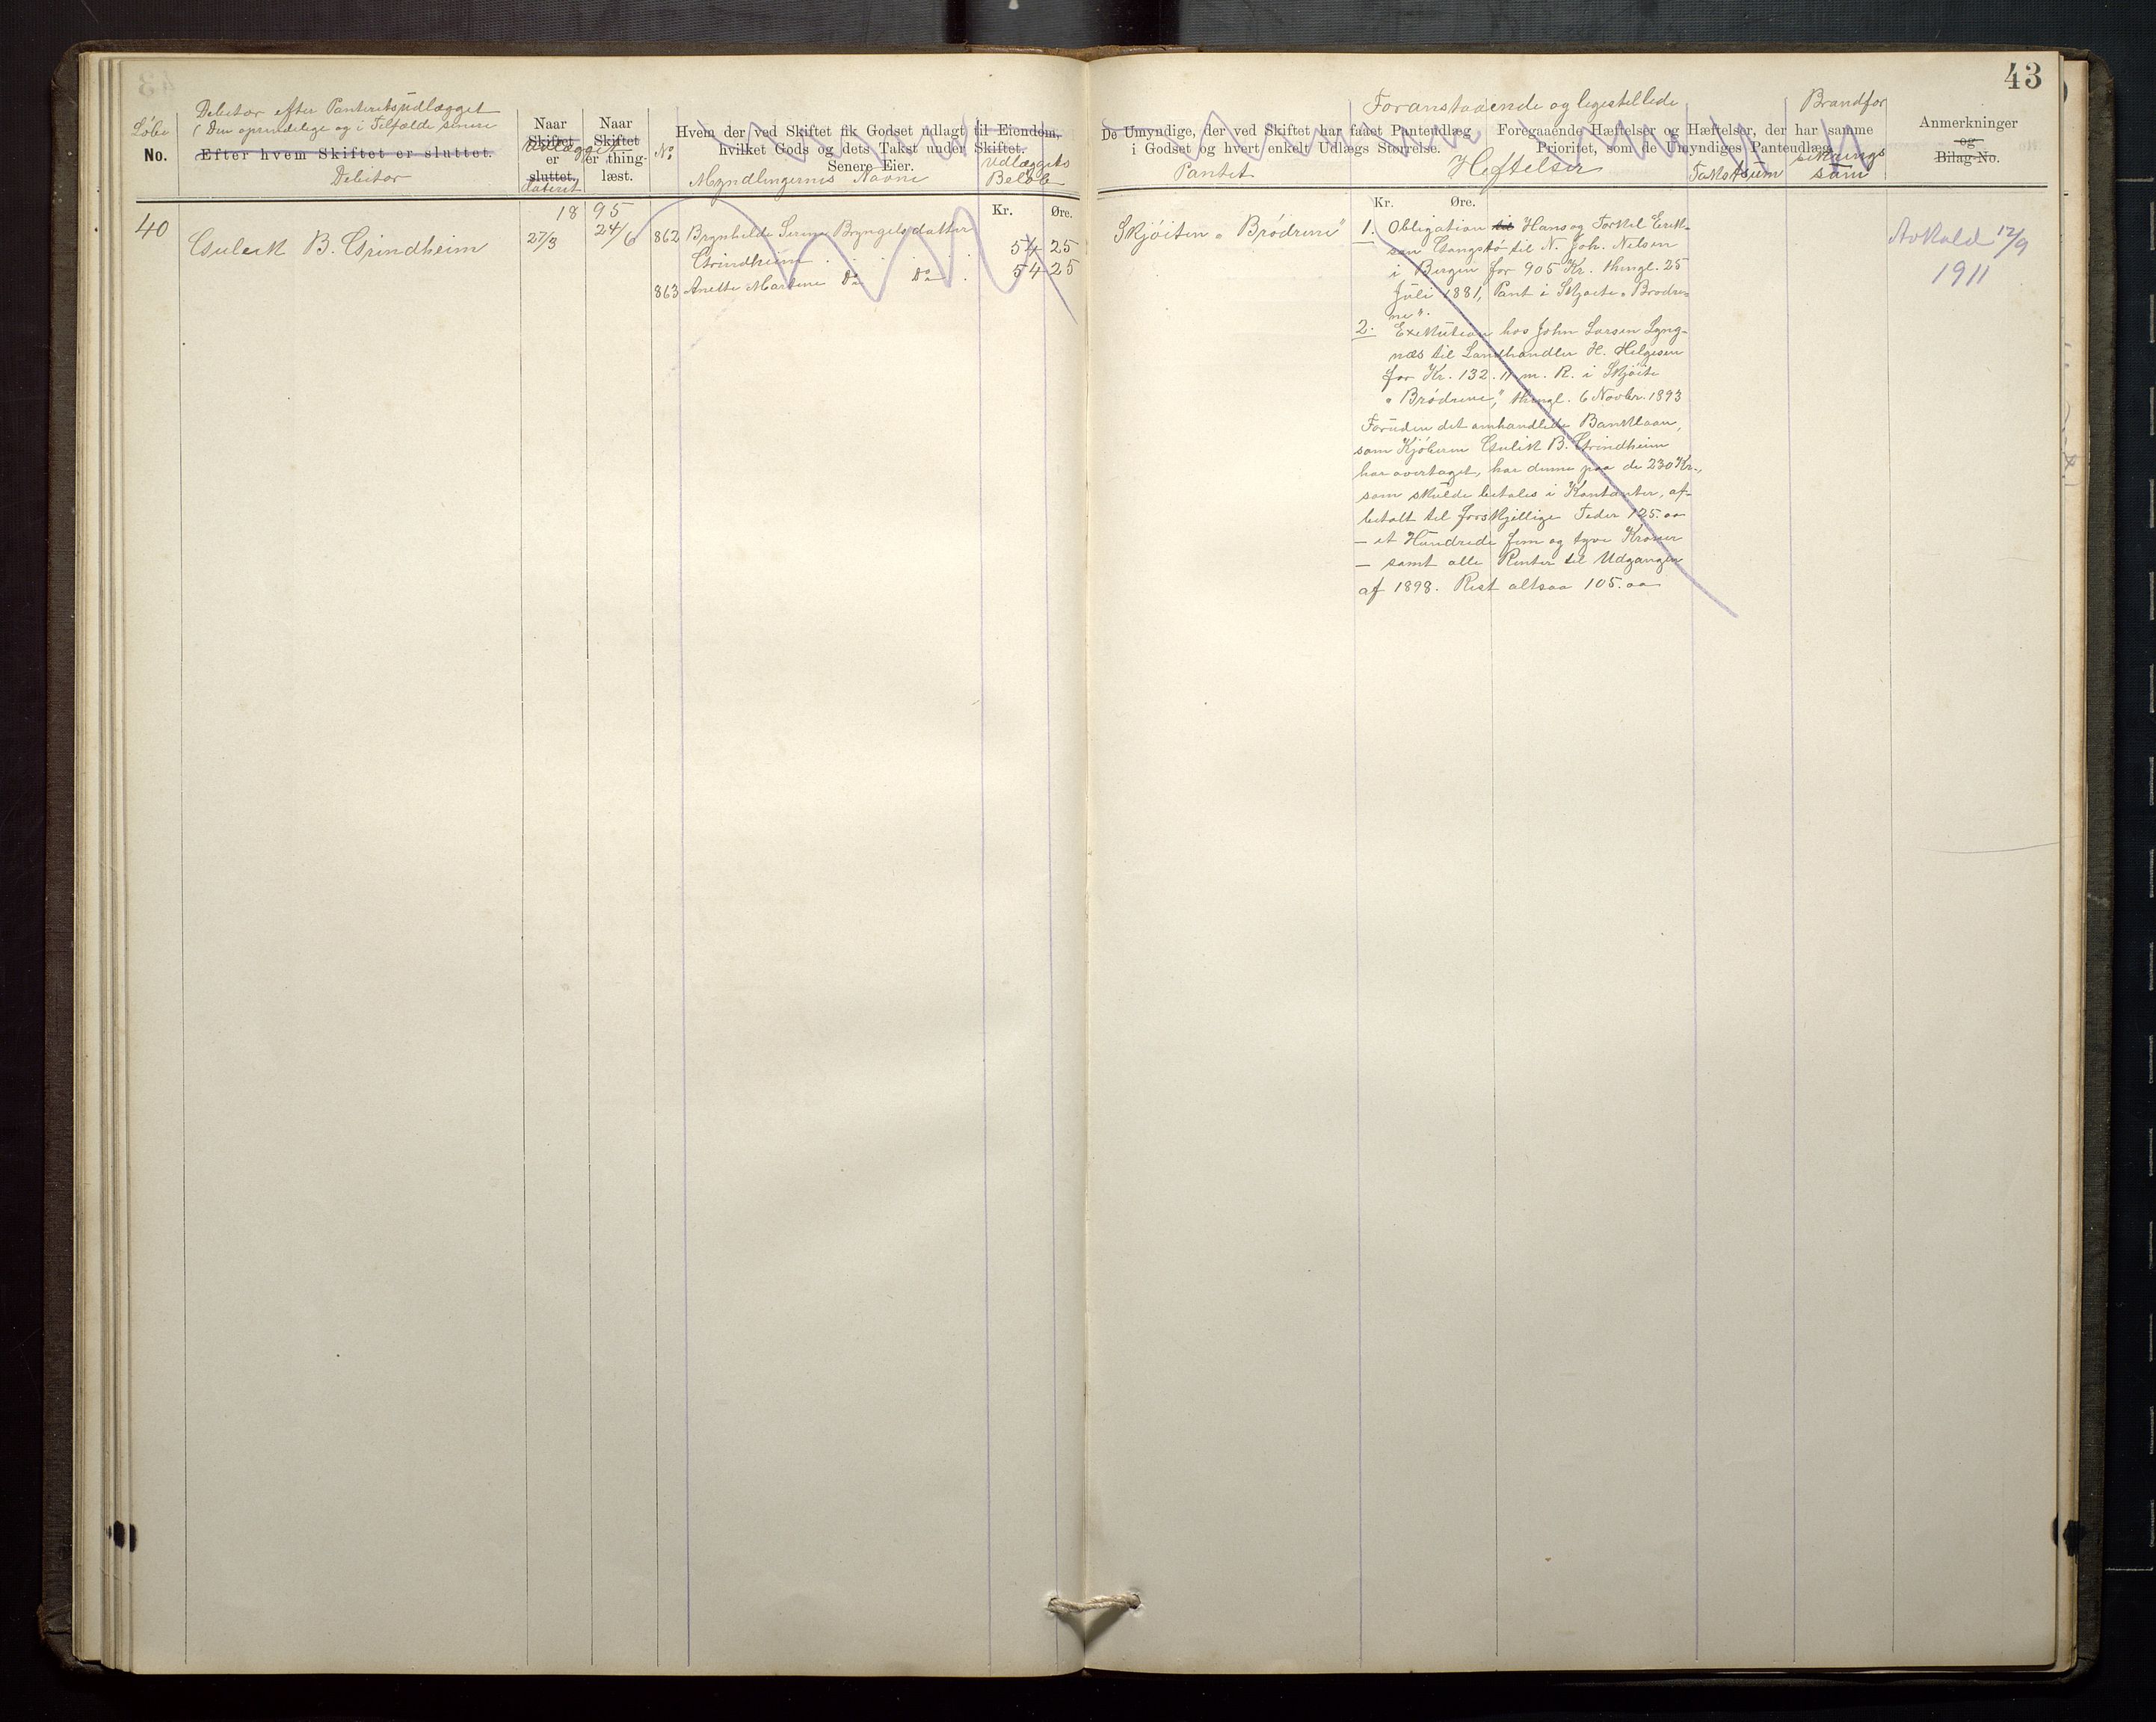 43
Debitor efter Panteretsudlægget
(Den oprindelige og i Tilfælde senere
Löbe
No.
Efter hvem Skiftet er sluttet.
Debitor
Naar
Skiftet
Udlægget
er
sluttet.
dateret
Naar
Skiftet
er thing-
læst.
No
Hvem der ved Skiftet fik Godset udlagt til Eiendom,
hvilket Gods og dets Takst under Skiftet.
Senere Eier.
Myndlingernes Navne
Udlæggets
Belöb
Foranstaaende og ligestillede
Brandfor
De Umyndige, der ved Skiftet har faaet Panteudlæg
i Godset og hvert enkelt Udlægs Størrelse.
Pantet
Foregaaende Hæftelser og Hæftelser, der har samme
Prioritet, som de Umyndiges Panteudlæg.
Heftelser
Takstsum
sikrings
sum
Anmerkninger
og
Bilag-No.
Kr. Øre.
Kr. Øre.
18 95
40 Guleik B. Grindheim 27/3 24/6
862 Brynhilde Serine Bryngelsdatter
Grindheim . . . . 54 25
863 Anette Martine Do Do . 54 25
Skjöiten "Brödrene"
1. Obligation til Hans og Torkel Erik-
sen Gangstö til N. Joh. Nelsen
i Bergen for 905 Kr. thingl. 25
Juli 1881, Pant i Skjöite "Brödre-
ne".
2. Exekution hos John Larsen Lyng-
næs til Landhandler H. Helgesen
for Kr. 132.11 m. R. i Skjöite
"Brödrene", thingl. 6 Novbr. 1893
Foruden det omhandlede Banklaan,
som Kjöberen Gulik B. Grindheim
har overtaget, har denne paa de 230 Kr.,
som skulde betales i Kontanter, af-
betalt til forskjellige Tider 125.00
— et Hundrede fem og tyve Kroner
— samt alle Renter til Udgangen
af 1898. Rest altsaa 105.00
Avkald 12/9
1911